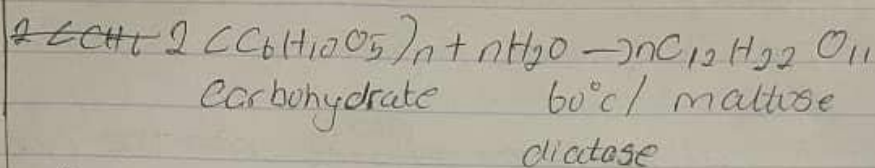 2 (C6H10O5)n + nH2O → nC12H22 O11
Carbohydrate 60°c/ maltose
diatase